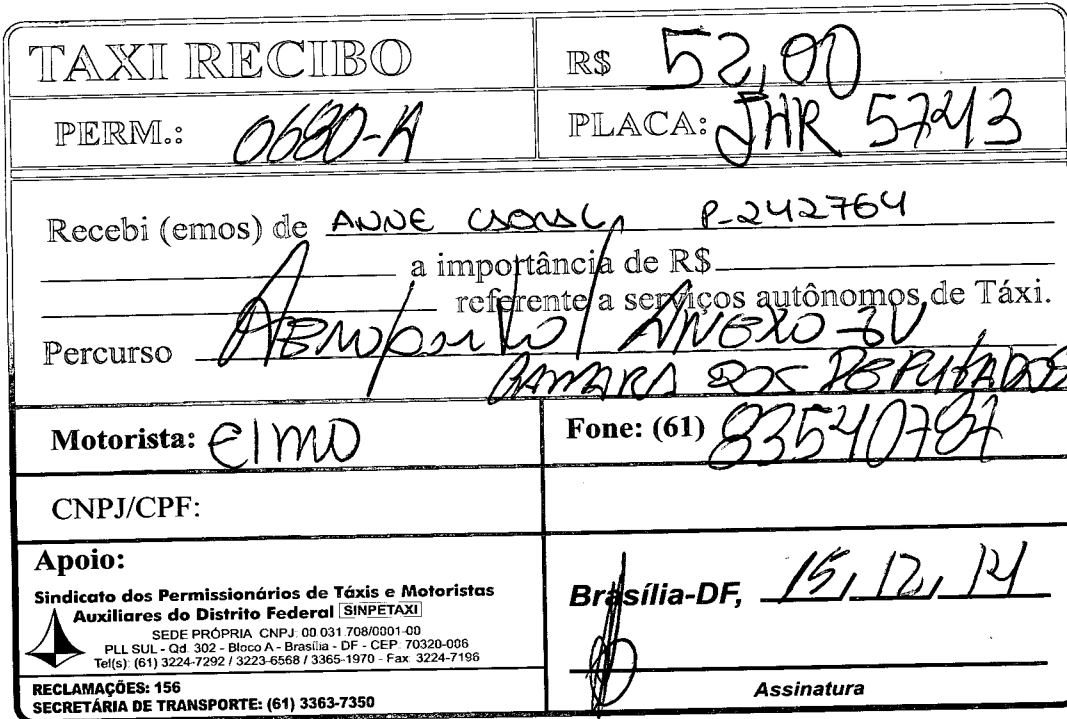 TAXI RECIBO
R$ 52,00
PERM.: 0680-A
PLACA: JHR 5743
Recebi (emos) de ANNE P-242764
a importância de R$
referente a serviços autônomos de Táxi.
Percurso Aeroporto / ANEXO IV
CAMARA DOS DEPUTADOS
Motorista: Elmo
Fone: (61) 83540787
CNPJ/CPF:
Apoio:
Sindicato dos Permissionários de Táxis e Motoristas
Auxiliares do Distrito Federal SINPETAXI
SEDE PRÓPRIA CNPJ: 00.031.708/0001-00
PLL SUL - Qd. 302 - Bloco A - Brasília - DF - CEP: 70320-006
Tel(s): (61) 3224-7292 / 3223-6568 / 3365-1970 - Fax: 3224-7196
RECLAMAÇÕES: 156
SECRETÁRIA DE TRANSPORTE: (61) 3363-7350
Brasília-DF, 15, 12, 14
Assinatura